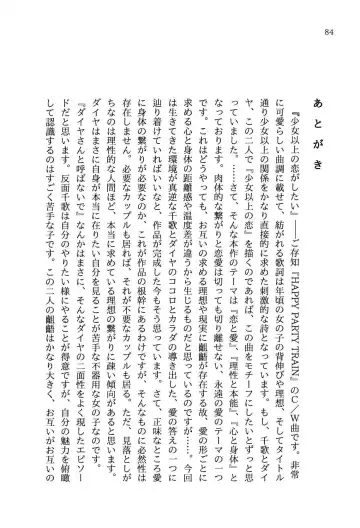 84
あとがき
『少女以上の恋がしたい』――ご存知『HAPPY PARTY TRAIN』のC/W曲です。非常
に可愛らしい曲調に載せて、紡がれる歌詞は年頃の女の子の背伸びや理想、そしてタイトル
通り少女以上の関係をかなり直接的に求めた刺激的な詩となっています。もし、千歌とダイ
ヤ、この二人で『少女以上の恋』を描くのであれば、この曲をモチーフにしたいとずっと思
っていました。……さて、そんな本作のテーマは『恋と愛』、『理性と本能』、『心と身体』と
なっております。肉体的な繋がりと恋愛は切っても切り離せない、永遠の愛のテーマの一つ
です。これはどうやっても、お互いの求める理想や現実に齟齬が存在する故、愛の形ごとに
求める心と身体の距離感や温度差が違うから生じるものだと思っているのですが……。今回
は生きてきた環境が真逆な千歌とダイヤのココロとカラダの導き出した、愛の答えの一つに
辿り着けていればいいなと、作品が完成した今もそう思っています。さて、正味なところ愛
に身体の繋がりが必要なのか、これが作品の根幹にあるわけですが、そんなものに必然性は
存在しません。必要なカップルも居れば、それが不要なカップルも居る。ただ、見落としが
ちなのは理性的な人間ほど、本当に求めている理想の繋がりに疎い傾向があると思います。
ダイヤはまさに自分が本当に在りたい自分を見ることが苦手な不器用な女の子です。『ダイ
ヤさんと呼ばないで』なんかはまさに、そんなダイヤの二面性をよく現したエピソー
ドだと思います。反面千歌は自分のやりたい様にやることが得意ですが、自分の魅力を俯瞰
して認識するのはすごく苦手な子です。この二人の齟齬はかなり大きく、お互いがお互いの